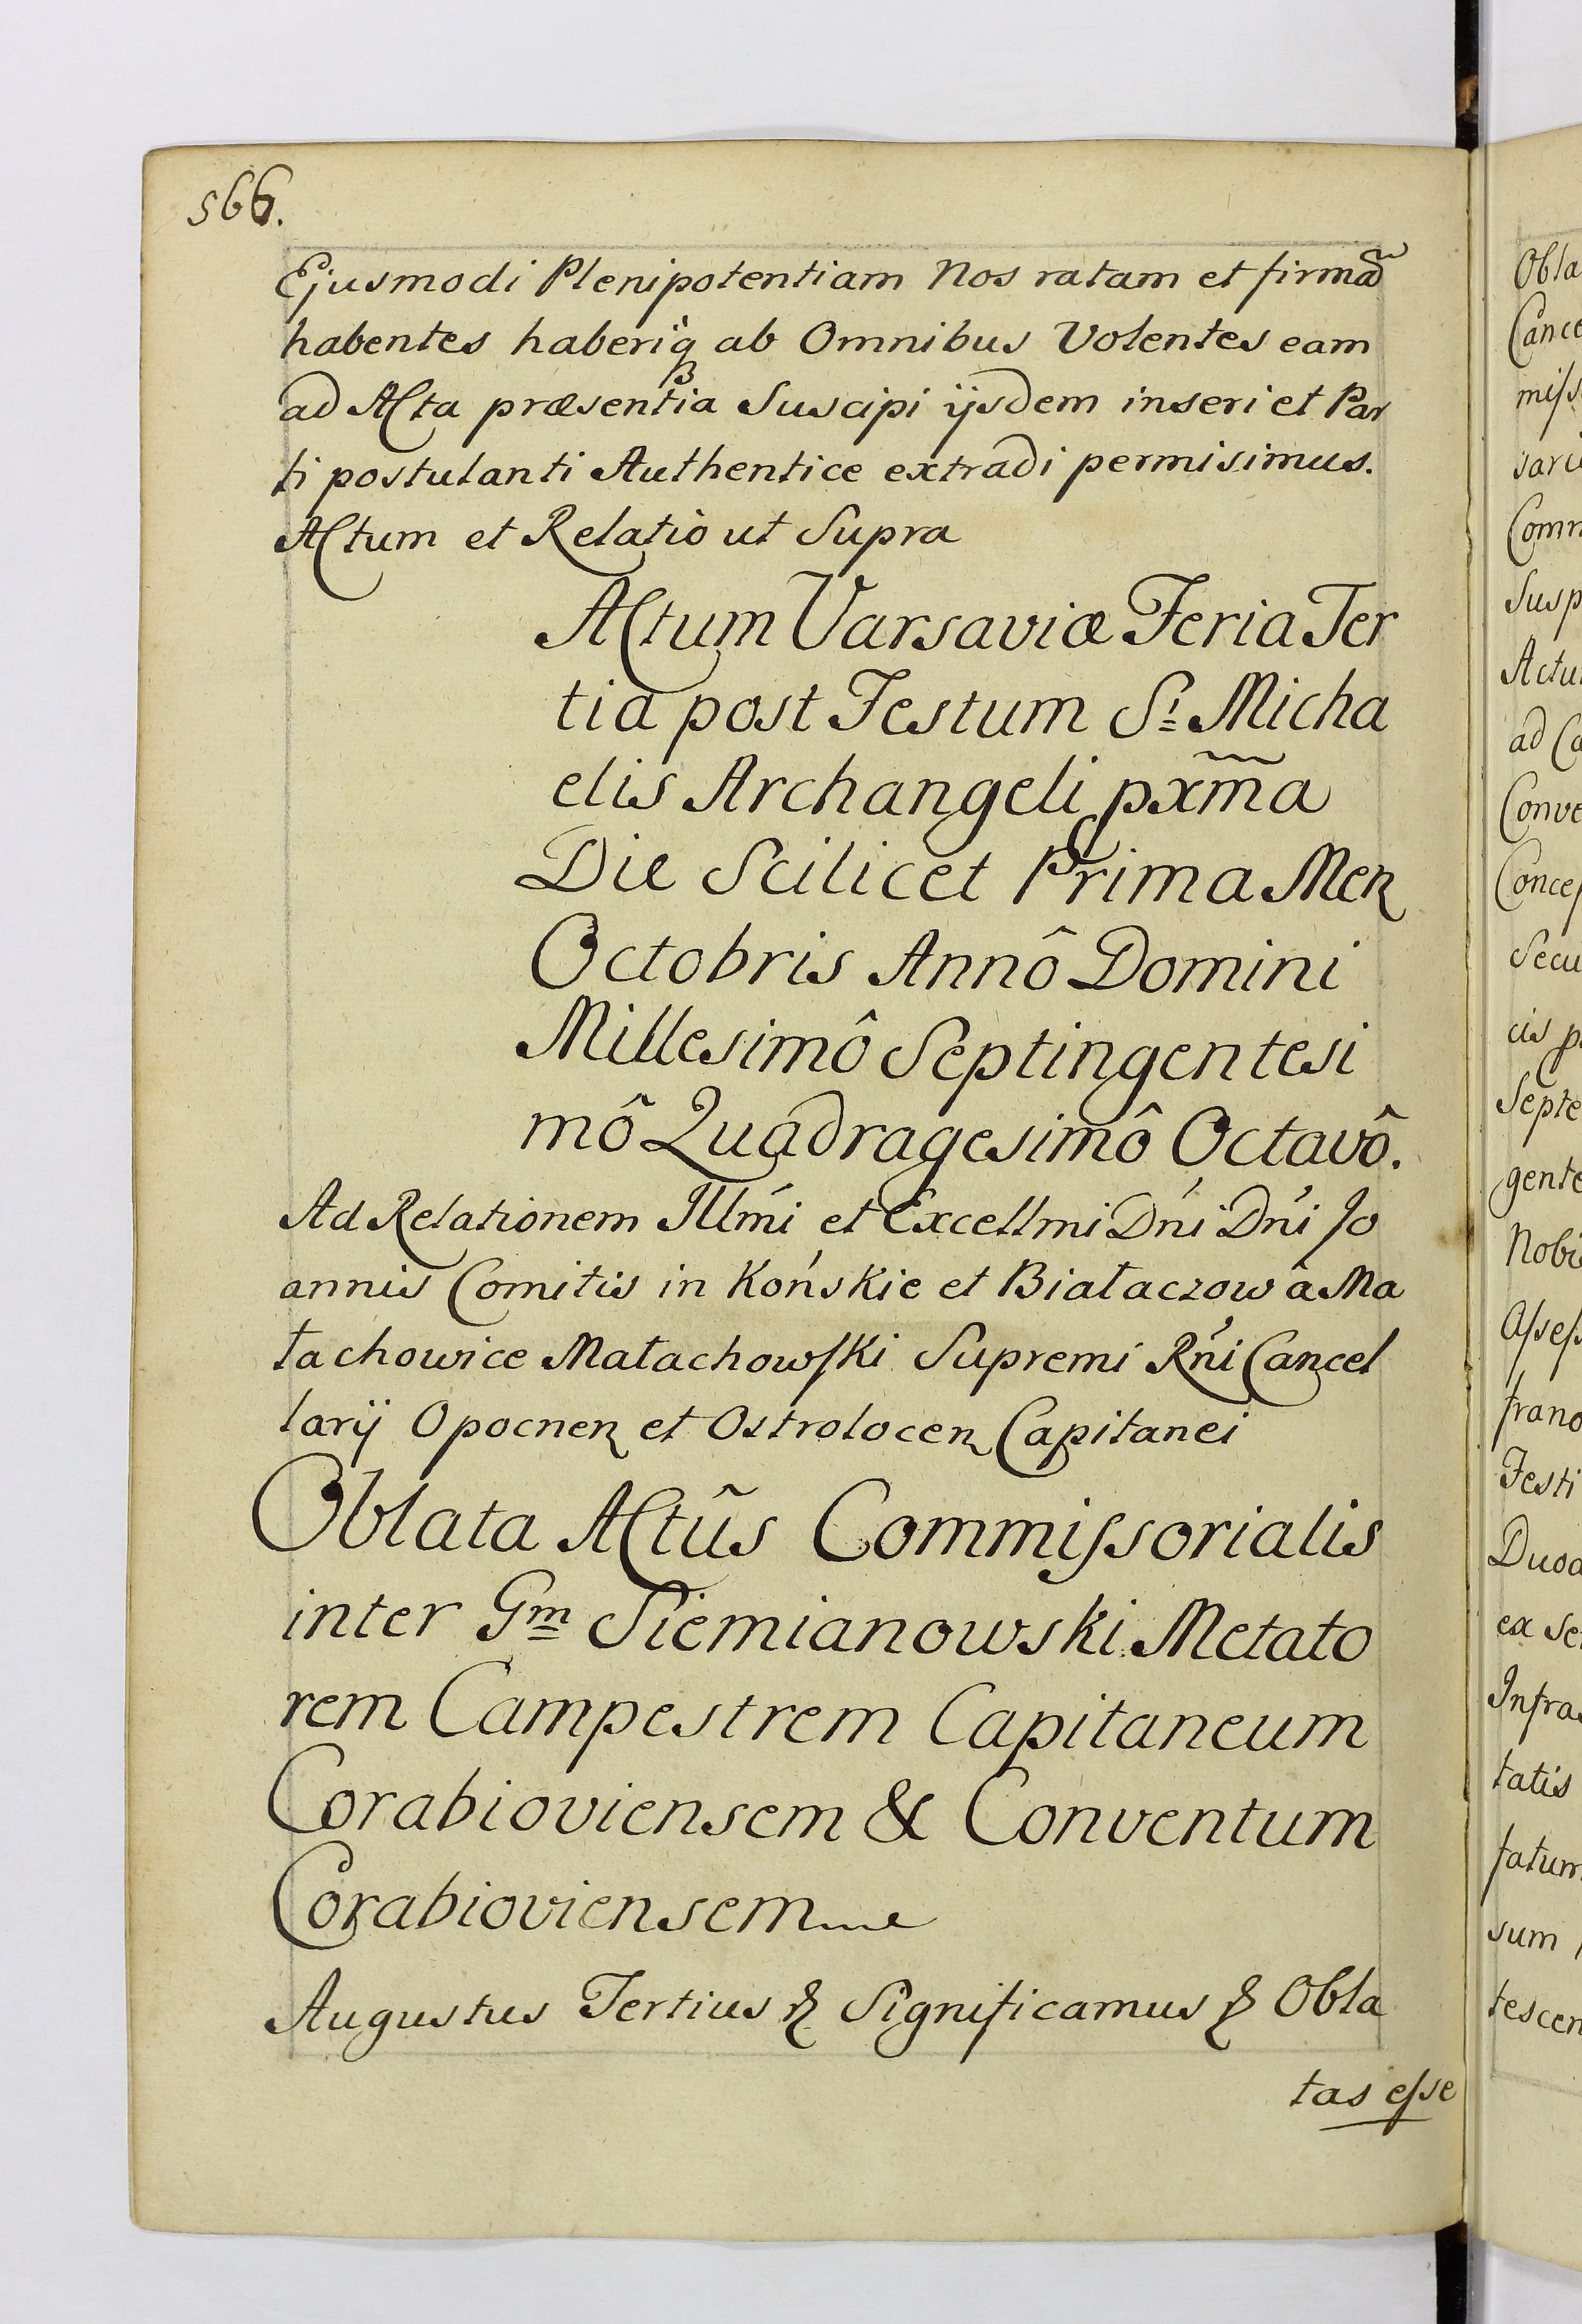 566.
Ejusmodi Plenipotentiam Nos ratam et firmã
habentes haberiq̀ ab Omnibus Volentes eam
ad Acta præsentia Suscipi ijsdem inseri et Par
ti postulanti Authentice extradi permisimus.
Actum et Relatiò ut Supra
Actum Varsaviæ Feria Ter
tia post Festum Si Micha
elis Archangeli px̃m̃a
Die Scilicet Prima Men
Octobris Annô Domini
Millesimô Septingentesi
mô Quadragesimô Octavô.
Ad Relationem Illḿi et Excellmi Dńi Dńi Jo
annis Comitis in Końskie et Białaczow â Ma
łachowice Małachowſki Supremi Rńi Cancel
larij Opocnen et Ostrolocen Capitanei
Oblata Actûs Commiſsorialis
inter Gm Siemianowski Metato
rem Campestrem Capitaneum
Corabioviensem & Conventum
Corabioviensem
Augustus Tertius & Significamus & Obla
tas eſse
Obla
Cance
miſs
sari
Comm
Susp
Actu
ad Ca
Conve
Concep
Secu
cis p
Septe
gente
Nobi
Aſseſs
frano
Festi
Duod
ex se
Infra
tatis
tatum
sum
tescen